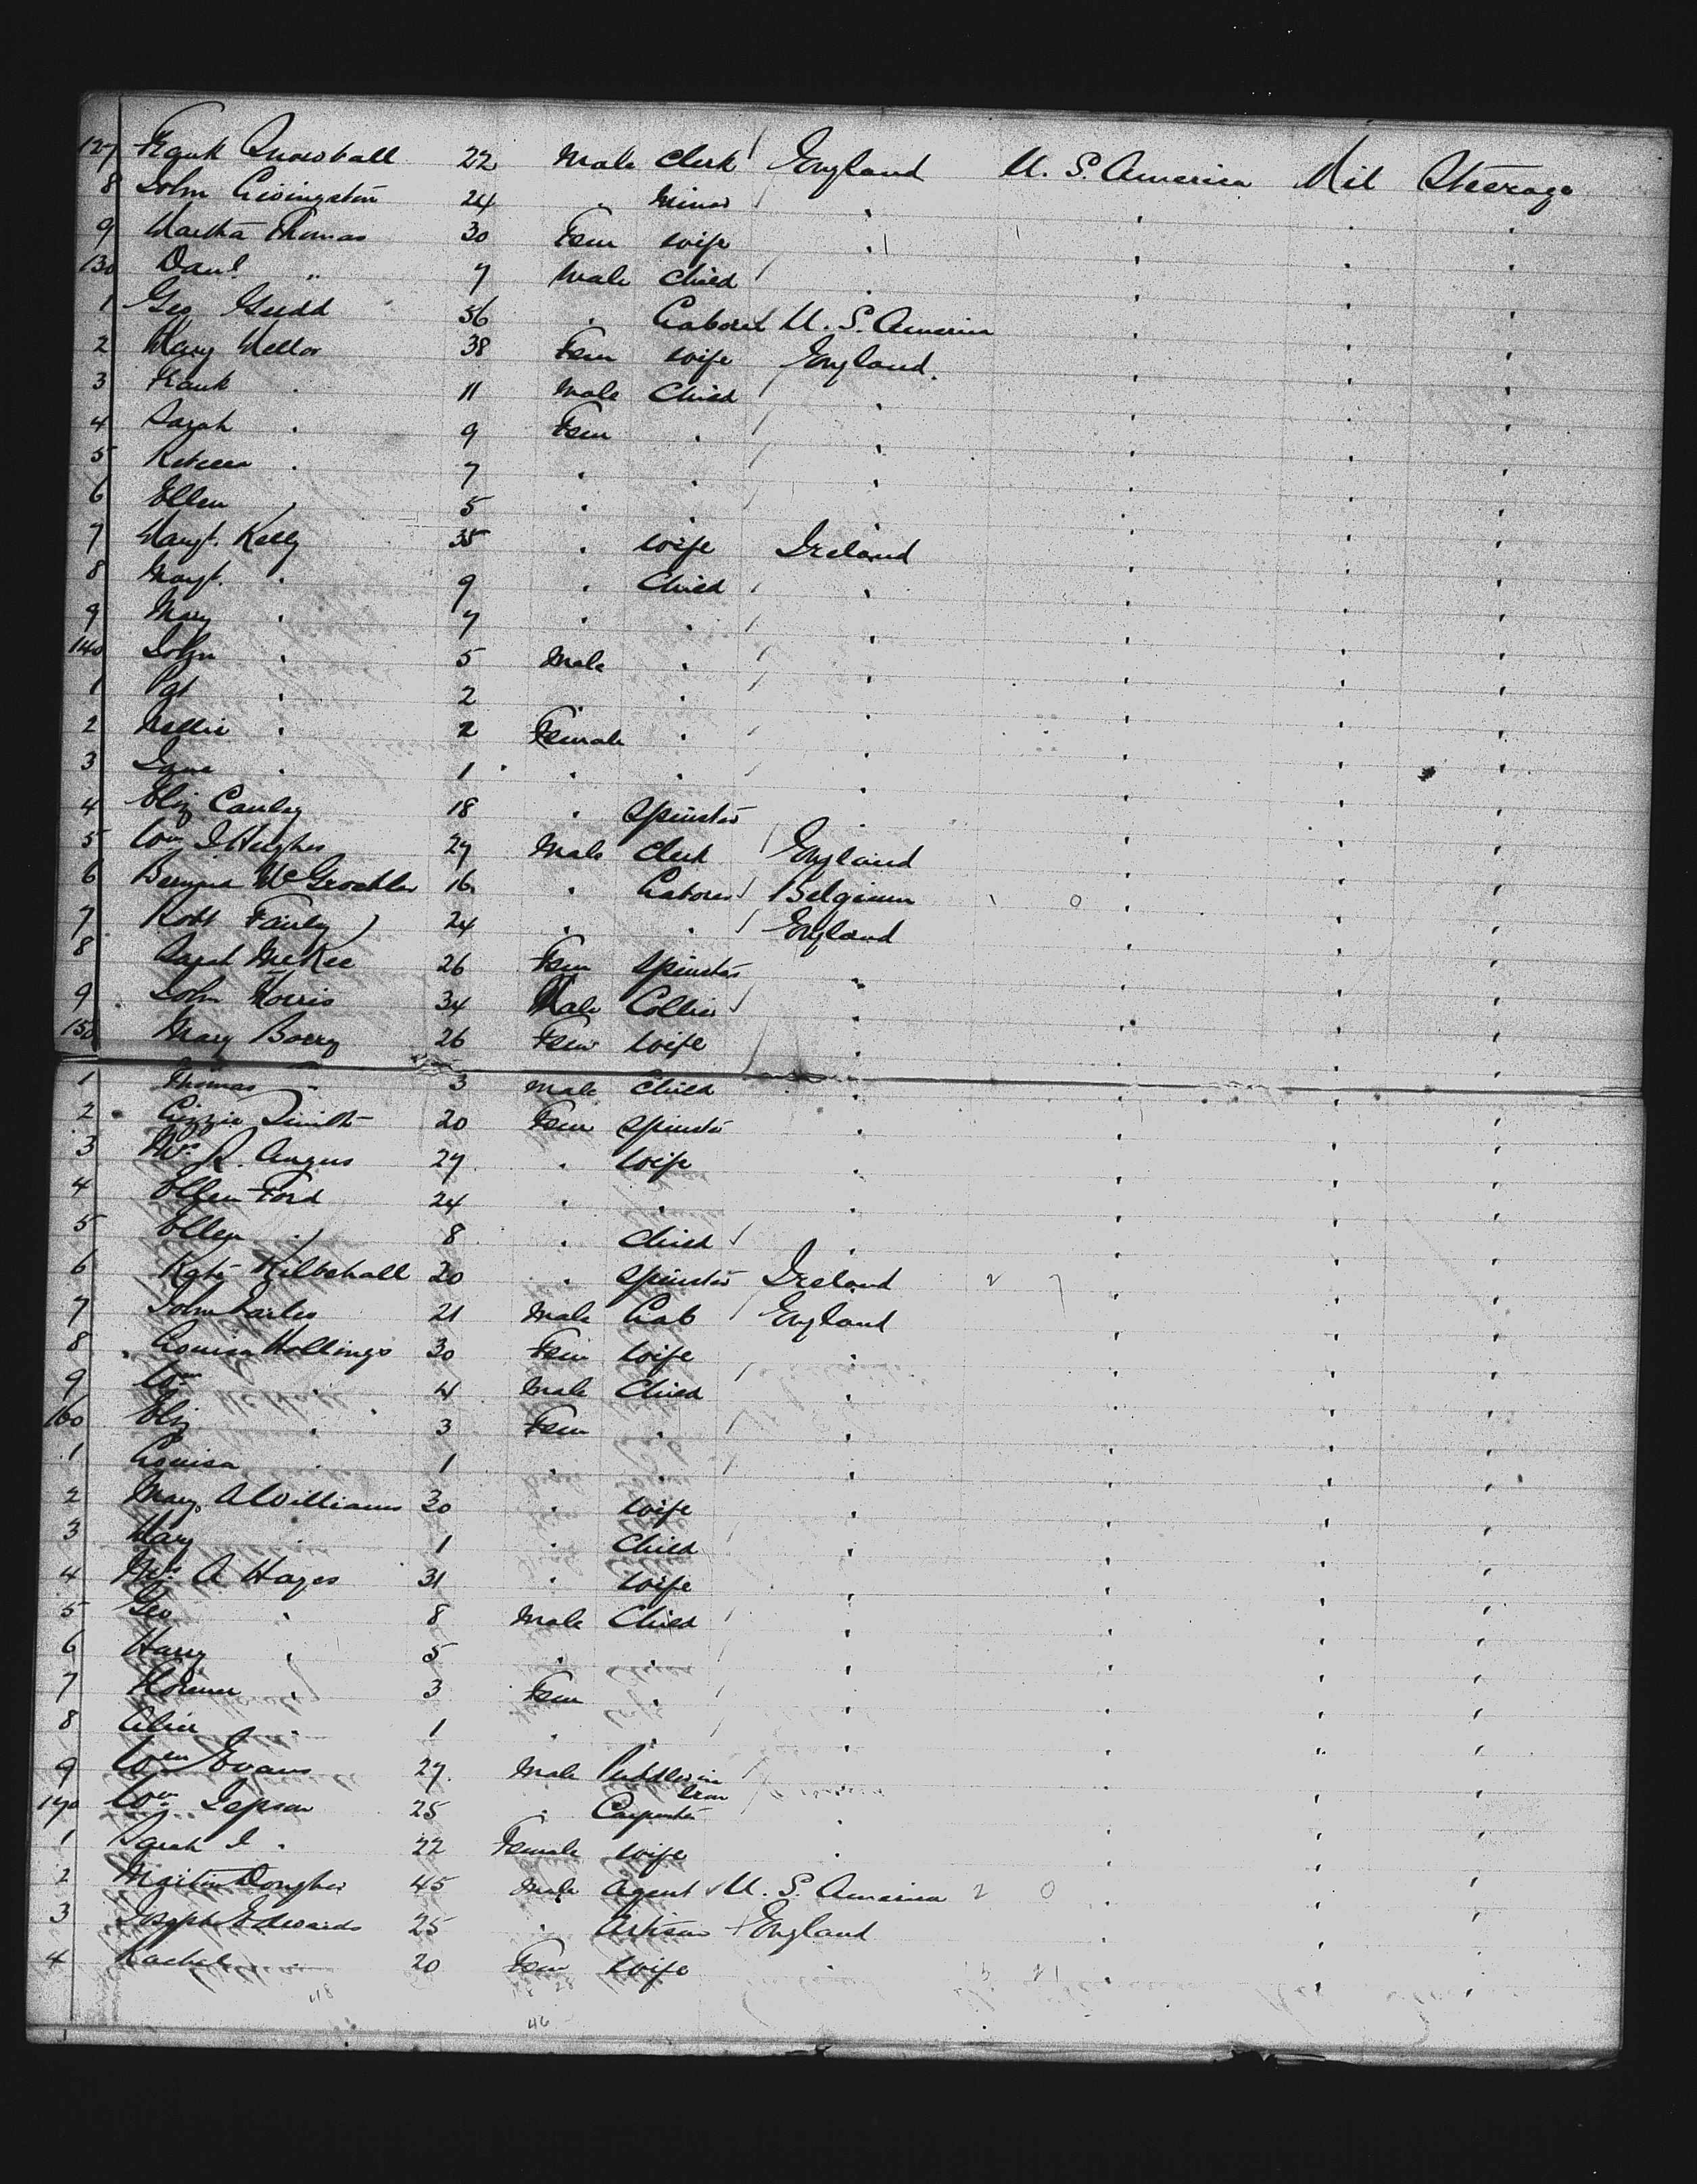 127 Frank Snowball 22 Male Clerk England U. S. America Nil Steerage
8 John Livingston 24 " Miner "
9 Martha Thomas 30 Fem Wife "
130 Danl " 7 Male Child "
1 Geo 56 " Laborer U. S. America
2 Mary Mellor 38 Fem Wife England
3 Frank " 11 Male Child "
4 Sarah " 9 Fem " "
5 Rebecca " 7 " " "
6 Ellen " 5 " " "
7 Margt. Kelly 35 " Wife Ireland
8 Margt. " 9 " Child "
9 Mary " 7 " " "
140 John " 5 Male " "
1 Pat " 2 " " "
2 Nellie " 2 Female " "
3 Jane " 1 " " "
4 Eliz Cauley 18 " Spinster "
5 Wm J Hughes 27 Male Clerk England
6 16 " Laborer Belgium
7 Robt Fairly 24 " " England
8 Sarah McKee 26 Fem Spinster "
9 John Morris 34 Male Collier "
150 Mary Barry 26 Fem Wife "
1 Thomas " 3 Male Child "
2 Lizzie Smith 20 Fem Spinster "
3 Mrs R. Angus 27 " Wife "
4 Ellen Ford 24 " " "
5 Ellen " 8 " Child "
6 Kate 20 " Spinster Ireland
7 John 21 Male Lab England
8 Louisa Hollings 30 Fem Wife "
9 Wm " 4 Male Child "
160 Eliz " 3 Fem " "
1 Louisa " 1 " " "
2 Mary A Williams 30 " Wife "
3 Mary " 1 " Child "
4 Mrs A Hayes 31 " Wife "
5 Geo " 8 Male Child "
6 Harry " 5 " " "
7 Florence " 3 Fem " "
8 Alice " 1 " " "
9 Wm Evans 27 Male Puddler in Iron "
170 Wm Jepson 25 " Carpenter "
1 Sarah J " 22 Female Wife "
2 Martin 45 Male Agent U. S. America
3 Joseph Edwards 25 " Artisan England
4 Rachel " 20 Fem Wife "
46